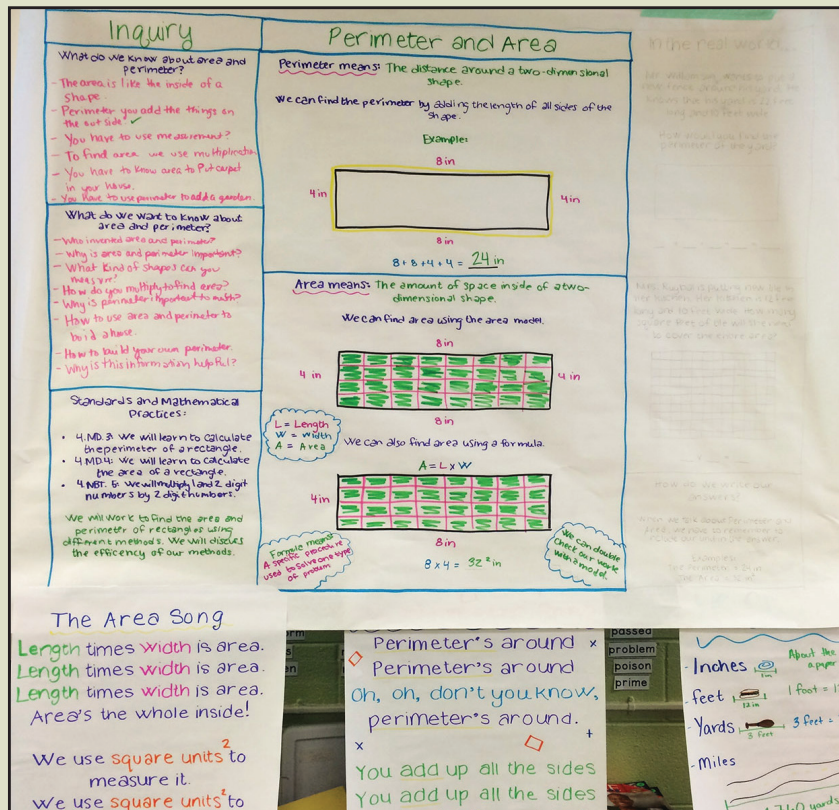 Inquiry
What do we know about area and
perimeter?
- The area is like the inside of a
shape.
- Perimeter you add the things on
the out side ✓
- You have to use measurement?
- To find area we use multiplication
- You have to know area to Put carpet
in your house.
- You have to use perimeter to add a garden.
What do we want to know about
area and perimeter?
- Who invented area and perimeter?
- Why is area and perimeter important?
- What kind of shapes can you
measure?
- How do you multiply to find area?
- Why is perimeter important to math?
- How to use area and perimeter to
build a house.
- How to build your own perimeter.
- Why is this information helpful?
Standards and Mathematical
Practices:
• 4.MD.3: We will learn to calculate
the perimeter of a rectangle.
• 4.MD.4: We will learn to calculate
the area of a rectangle.
• 4.NBT.5: We will multiply 1 and 2 digit
numbers by 2 digit numbers.
We will work to find the area and
perimeter of rectangles using
different methods. We will discuss
the efficency of our methods.
Perimeter and Area
Perimeter means: The distance around a two-dimensional
shape.
We can find the perimeter by adding the length of all sides of the
shape.
Example:
8 in
4 in
4 in
8 in
8 + 8 + 4 + 4 = 24 in
Area means: The amount of space inside of a two-
dimensional shape.
We can find area using the area model.
8 in
4 in
4 in
8 in
L = Length
W = Width
A = Area
We can also find area using a formula.
A = L x W
4 in
8 in
8 x 4 = 32² in
Formula means:
A specific procedure
used to solve one type
of problem
We can double
check our work
with a model.
In the real world...
How do we write our
answers?
The Area Song
Length times width is area.
Length times width is area.
Length times width is area.
Area's the whole inside!
We use square units² to
measure it.
We use square units² to
Perimeter's around x
Perimeter's around
Oh, oh, don't you know,
perimeter's around.
x
+
You add up all the sides
You add up all the sides
passed
problem
poison
prime
- Inches
1 in
About the
a paper
- feet
12 in
1 foot = 1
- Yards
3 feet
3 feet =
- Miles
yards